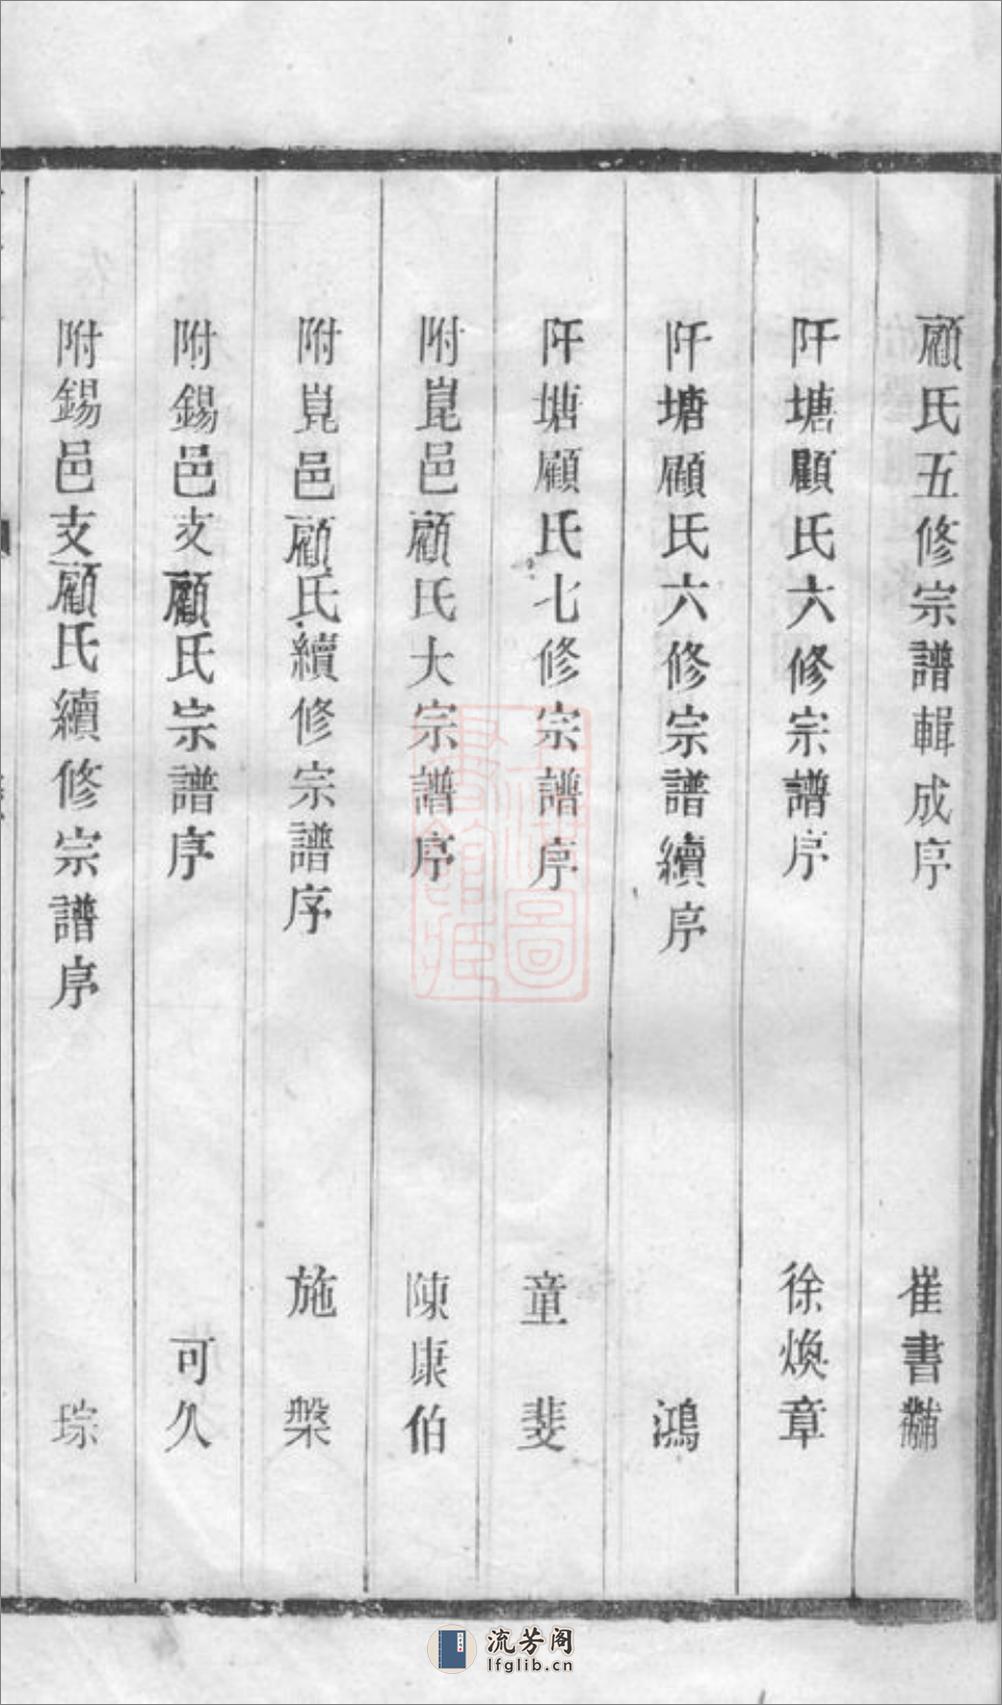 顧氏五修宗譜輯成序 崔書黼
阡塘顧氏六修宗譜序 徐煥章
阡塘顧氏六修宗譜續序 鴻
阡塘顧氏七修宗譜序 童斐
附崑邑顧氏大宗譜序 陳康伯
附崑邑顧氏續修宗譜序 施槃
附錫邑支顧氏宗譜序 可久
附錫邑支顧氏續修宗譜序 琮
上海圖書館藏
流芳阁
lfglib.cn